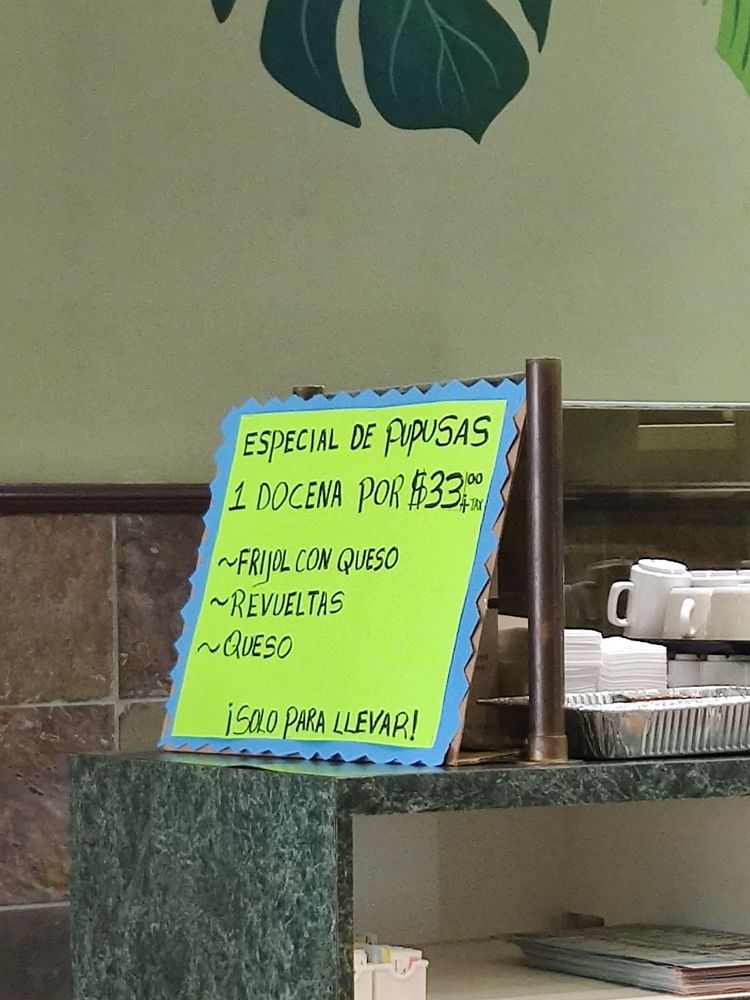 ESPECIAL DE PUPUSAS
1 DOCENA POR $33.00 + TAX
~FRIJOL CON QUESO
~REVUELTAS
~QUESO
¡SOLO PARA LLEVAR!